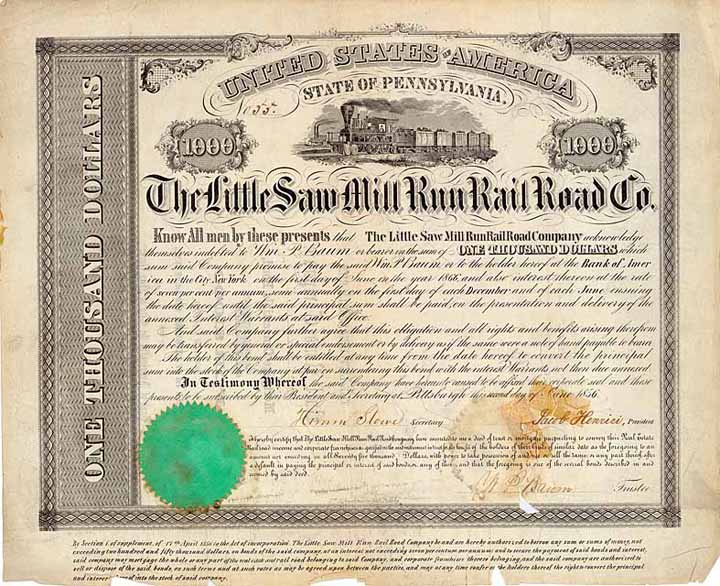 UNITED STATES OF AMERICA
STATE OF PENNSYLVANIA.
No 55.
1000
1000
ONE THOUSAND DOLLARS
The Little Saw Mill Run Rail Road Co.
Know All men by these presents that The Little Saw Mill Run Rail Road Company acknowledge
themselves indebted to Wm. P. Baum or bearer in the sum of ONE THOUSAND DOLLARS which
sum said Company promise to pay the said Wm. P. Baum, or to the holder hereof at the Bank of Amer
ica in the City New York on the first day of June in the year 1866, and also interest thereon at the rate
of seven per cent per annum, semi annually on the first day of each December and of each June ensuing
the date hereof until the said principal sum shall be paid, on the presentation and delivery of the
annexed Interest Warrants at said Office.
And said Company further agree that this obligation and all rights and benefits arising therefrom
may be transferred by general or special endorsement or by delivery as if the same were a note of hand payable to bearer.
The holder of this bond shall be entitled at any time from the date hereof to convert the principal
sum into the stock of the Company at par on surrendering this bond with the interest Warrants not then due annexed.
In Testimony Whereof the said Company have hereunto caused to be affixed their corporate seal and these
presents to be subscribed by their President and Secretary at Pittsburgh this second day of June 1856.
Hiram Stowe Secretary
Jacob Henrici, President
I hereby certify that The Little Saw Mill Run Rail Road Company, have executed to me a deed of trust or mortgage purporting to convey their Real Estate
Rail road income and corporate franchises
for the benefit of the holders of their bonds of similar date as the foregoing to an
amount not exceeding in all Seventy five thousand, Dollars, with power to take possession of and to sell the same or any part thereof after
a default in paying the principal or interest of said bonds or any of them, and that the foregoing is one of the several bonds described in and
secured by said deed.
W. P. Baum Trustee
By Section 1. of supplement, of 17th April 1856 to the Act of incorporation. The Little Saw Mill Run Rail Road Company be and are hereby authorized to borrow any sum or sums of money, not
exceeding two hundred and fifty thousand dollars, on bonds of the said company, at an interest not exceeding seven per centum per annum: and to secure the payment of said bonds and interest,
said company may mortgage the whole or any part of the real estate and rail road belonging to said Company, and corporate franchises thereto belonging; and the said company are authorized to
sell or dispose of the said bonds, on such terms and at such rates as may be agreed upon between the parties, and may at any time confer on the holders thereof the right to convert the principal
and interest thereof into the stock of said company.